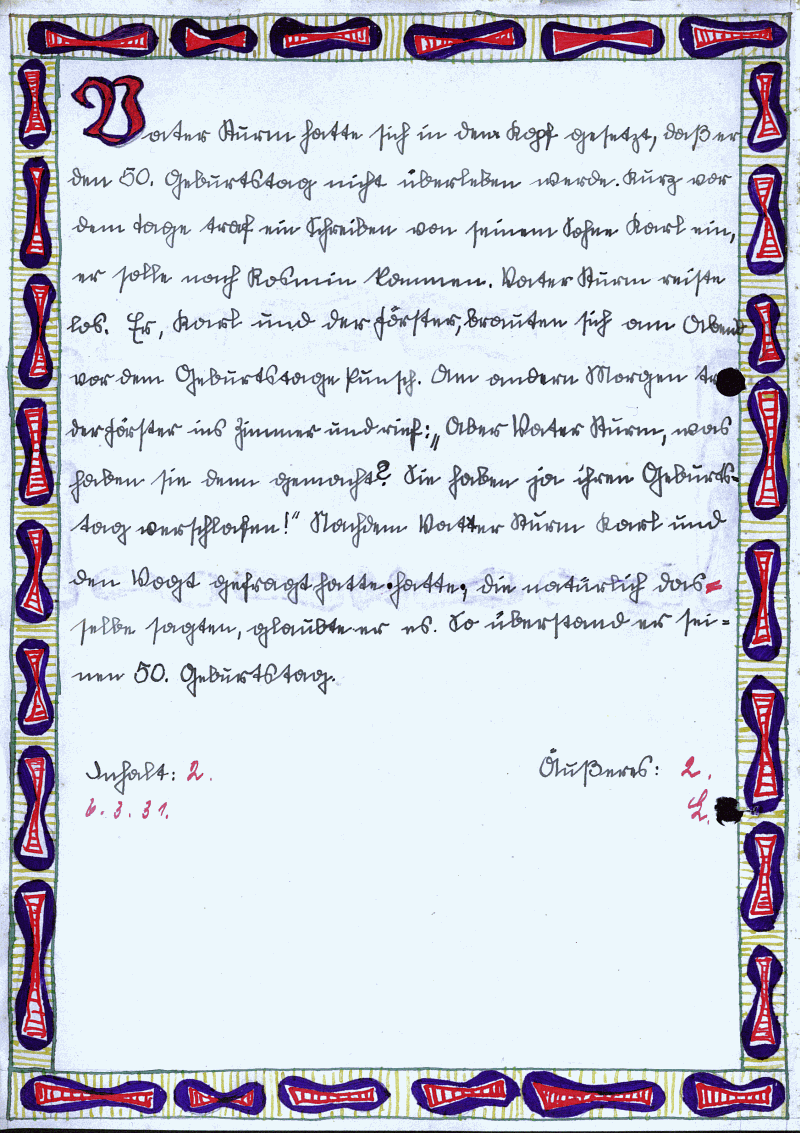 Vater Sturm hatte sich in den Kopf gesetzt, daß er
den 50. Geburtstag nicht überleben werde. Kurz vor
dem Tage traf ein Schreiben von seinem Sohne Karl ein,
er solle nach Rosmin kommen. Vater Sturm reiste
los. Er, Karl und der Förster, brauten sich am Abend
vor dem Geburtstage Punsch. Am andern Morgen tr
der Förster ins Zimmer und rief: „Aber Vater Sturm, was
haben sie denn gemacht? Sie haben ja ihren Geburts-
tag verschlafen!“ Nachdem Vater Sturm Karl und
den Vogt gefragt hatte hatte, die natürlich das=
selbe sagten, glaubte er es. So überstand er sei=
nen 50. Geburtstag.
Inhalt: 2. Äußeres: 2.
6.3.31. L.